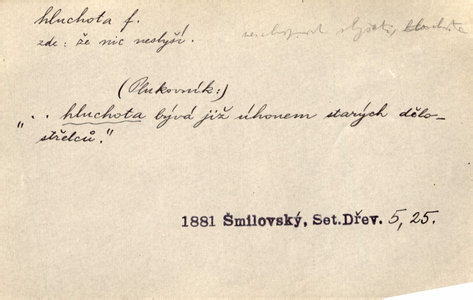 hluchota f.
zde: že nic neslyší.
neschopnost slyšeti,
(Plukovník:)
".. hluchota bývá již úhonem starých dělo-
střelců."
1881 Šmilovský, Set.Dřev. 5, 25.